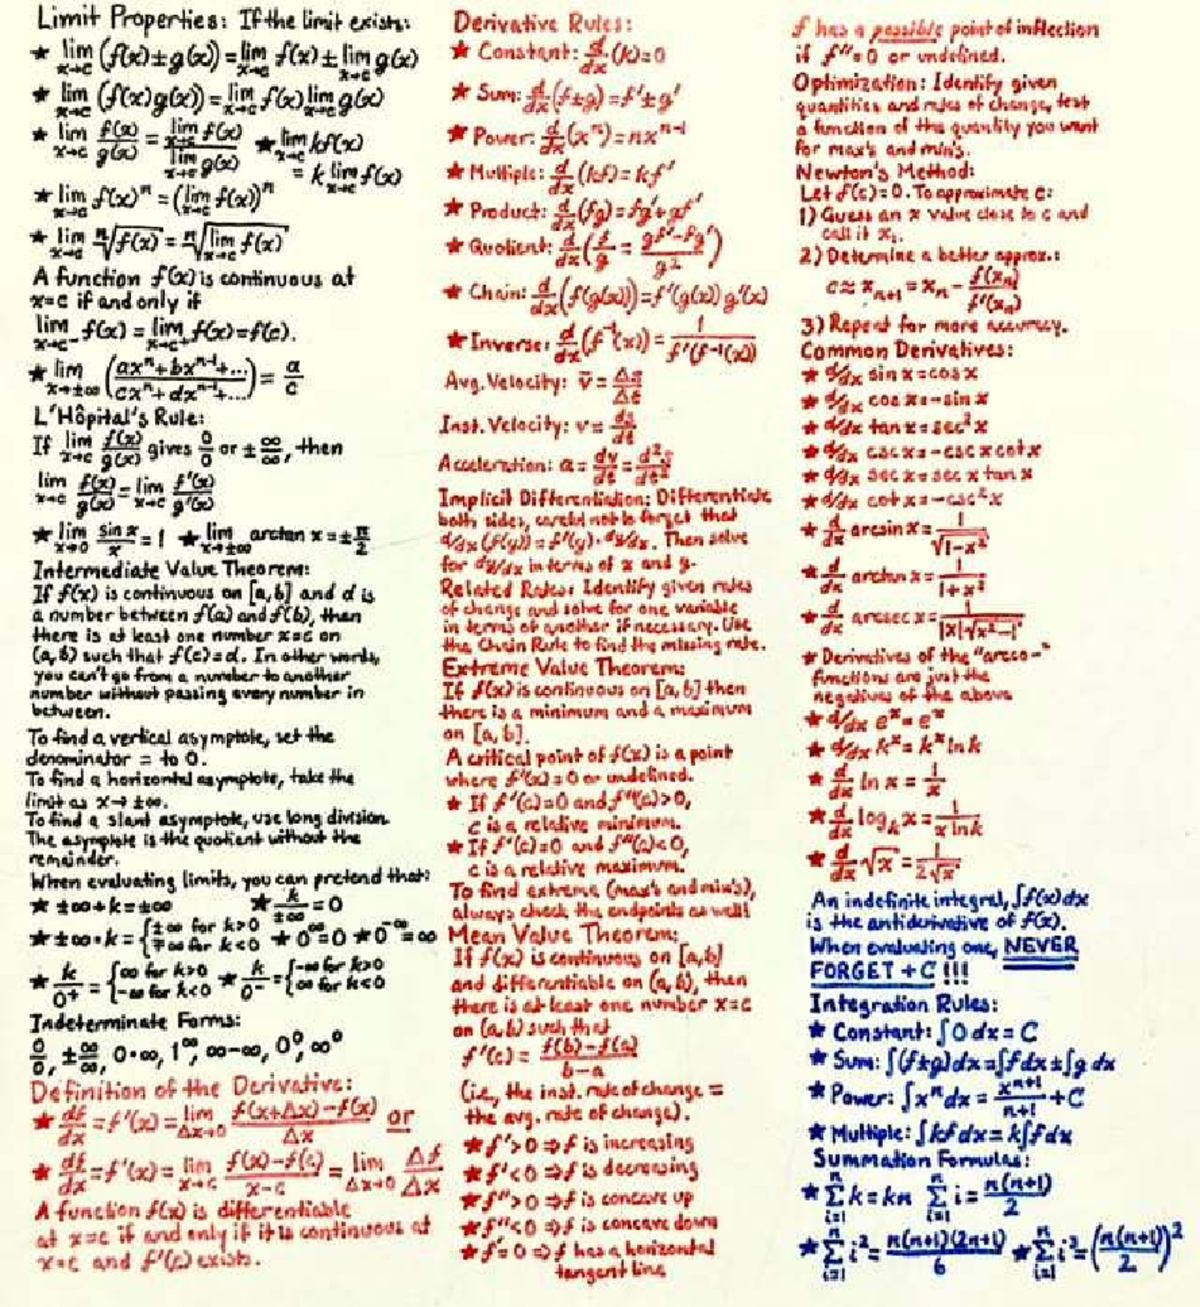 Limit Properties: If the limit exists:
★ lim x→c (f(x)±g(x)) = lim x→c f(x) ± lim x→c g(x)
★ lim x→c (f(x)g(x)) = lim x→c f(x) lim x→c g(x)
★ lim x→c f(x)/g(x) = lim x→c f(x) / lim x→c g(x) ★ lim x→c kf(x)
= k lim x→c f(x)
★ lim x→c f(x)ⁿ = (lim x→c f(x))ⁿ
★ lim x→c ⁿ√f(x) = ⁿ√lim x→c f(x)
A function f(x) is continuous at
x=c if and only if
lim x→c⁻ f(x) = lim x→c⁺ f(x) = f(c).
★ lim x→±∞ (axⁿ+bxⁿ⁻¹+... / cxⁿ+dxⁿ⁻¹+...) = a/c
L'Hôpital's Rule:
If lim x→c f(x)/g(x) gives 0/0 or ±∞/∞, then
lim x→c f(x)/g(x) = lim x→c f'(x)/g'(x)
★ lim x→0 sin x/x = 1 ★ lim x→±∞ arctan x = ±π/2
Intermediate Value Theorem:
If f(x) is continuous on [a,b] and d is
a number between f(a) and f(b), then
there is at least one number x=c on
(a,b) such that f(c)=d. In other words,
you can't go from a number to another
number without passing every number in
between.
To find a vertical asymptote, set the
denominator = to 0.
To find a horizontal asymptote, take the
limit as x→±∞.
To find a slant asymptote, use long division.
The asymptote is the quotient without the
remainder.
When evaluating limits, you can pretend that:
★ ±∞+k=±∞ ★ k/±∞ = 0
★ ±∞·k = {±∞ for k>0 ∓∞ for k<0 ★ 0^∞=0 ★ 0^-∞=∞
★ k/0⁺ = {∞ for k>0 -∞ for k<0 ★ k/0⁻ = {-∞ for k>0 ∞ for k<0
Indeterminate Forms:
0/0, ±∞/∞, 0·∞, 1^∞, ∞-∞, 0⁰, ∞⁰
Definition of the Derivative:
★ df/dx = f'(x) = lim Δx→0 f(x+Δx)-f(x) / Δx or
★ df/dx = f'(x) = lim x→c f(x)-f(c) / x-c = lim Δx→0 Δf/Δx
A function f(x) is differentiable
at x=c if and only if it is continuous at
x=c and f'(c) exists.
Derivative Rules:
★ Constant: d/dx (k)=0
★ Sum: d/dx (f±g)=f'±g'
★ Power: d/dx (xⁿ)=nxⁿ⁻¹
★ Multiple: d/dx (kf)=kf'
★ Product: d/dx (fg)=fg'+gf'
★ Quotient: d/dx (f/g = gf'-fg' / g²)
★ Chain: d/dx (f(g(x)))=f'(g(x)) g'(x)
★ Inverse: d/dx (f⁻¹(x)) = 1 / f'(f⁻¹(x))
Avg. Velocity: v̄ = Δs/Δt
Inst. Velocity: v = ds/dt
Acceleration: a = dv/dt = d²s/dt²
Implicit Differentiation: Differentiate
both sides, careful not to forget that
d/dx (f(y)) = f'(y) · dy/dx. Then solve
for dy/dx in terms of x and y.
Related Rates: Identify given rates
of change and solve for one variable
in terms of another if necessary. Use
the Chain Rule to find the missing rate.
Extreme Value Theorem:
If f(x) is continuous on [a,b] then
there is a minimum and a maximum
on [a,b].
A critical point of f(x) is a point
where f'(x)=0 or undefined.
★ If f'(c)=0 and f''(c)>0,
c is a relative minimum.
★ If f'(c)=0 and f''(c)<0,
c is a relative maximum.
To find extreme (max's and min's),
always check the endpoints as well!
Mean Value Theorem:
If f(x) is continuous on [a,b]
and differentiable on (a,b), then
there is at least one number x=c
on (a,b) such that
f'(c) = f(b)-f(a) / b-a
(i.e., the inst. rate of change =
the avg. rate of change).
★ f'>0 ⇒ f is increasing
★ f'<0 ⇒ f is decreasing
★ f''>0 ⇒ f is concave up
★ f''<0 ⇒ f is concave down
★ f'=0 ⇒ f has a horizontal
tangent line
f has a possible point of inflection
if f''=0 or undefined.
Optimization: Identify given
quantities and rates of change, test
a function of the quantity you want
for max's and min's.
Newton's Method:
Let f(c)=0. To approximate c:
1) Guess an x value close to c and
call it x₁.
2) Determine a better approx.:
c ≈ xₙ₊₁ = xₙ - f(xₙ)/f'(xₙ)
3) Repeat for more accuracy.
Common Derivatives:
★ d/dx sin x = cos x
★ d/dx cos x = -sin x
★ d/dx tan x = sec² x
★ d/dx csc x = -csc x cot x
★ d/dx sec x = sec x tan x
★ d/dx cot x = -csc² x
★ d/dx arcsin x = 1/√1-x²
★ d/dx arctan x = 1/1+x²
★ d/dx arcsec x = 1/|x|√x²-1
★ Derivatives of the "arcco-"
functions are just the
negatives of the above
★ d/dx eˣ = eˣ
★ d/dx kˣ = kˣ ln k
★ d/dx ln x = 1/x
★ d/dx logₖ x = 1/x ln k
★ d/dx √x = 1/2√x
An indefinite integral, ∫f(x)dx
is the antiderivative of f(x).
When evaluating one, NEVER
FORGET + C !!!
Integration Rules:
★ Constant: ∫0 dx = C
★ Sum: ∫(f±g)dx = ∫f dx ± ∫g dx
★ Power: ∫xⁿ dx = xⁿ⁺¹/n+1 + C
★ Multiple: ∫kf dx = k∫f dx
Summation Formulas:
★ Σ i=1 n k = kn Σ i=1 n i = n(n+1)/2
★ Σ i=1 n i² = n(n+1)(2n+1)/6 ★ Σ i=1 n i³ = (n(n+1)/2)²